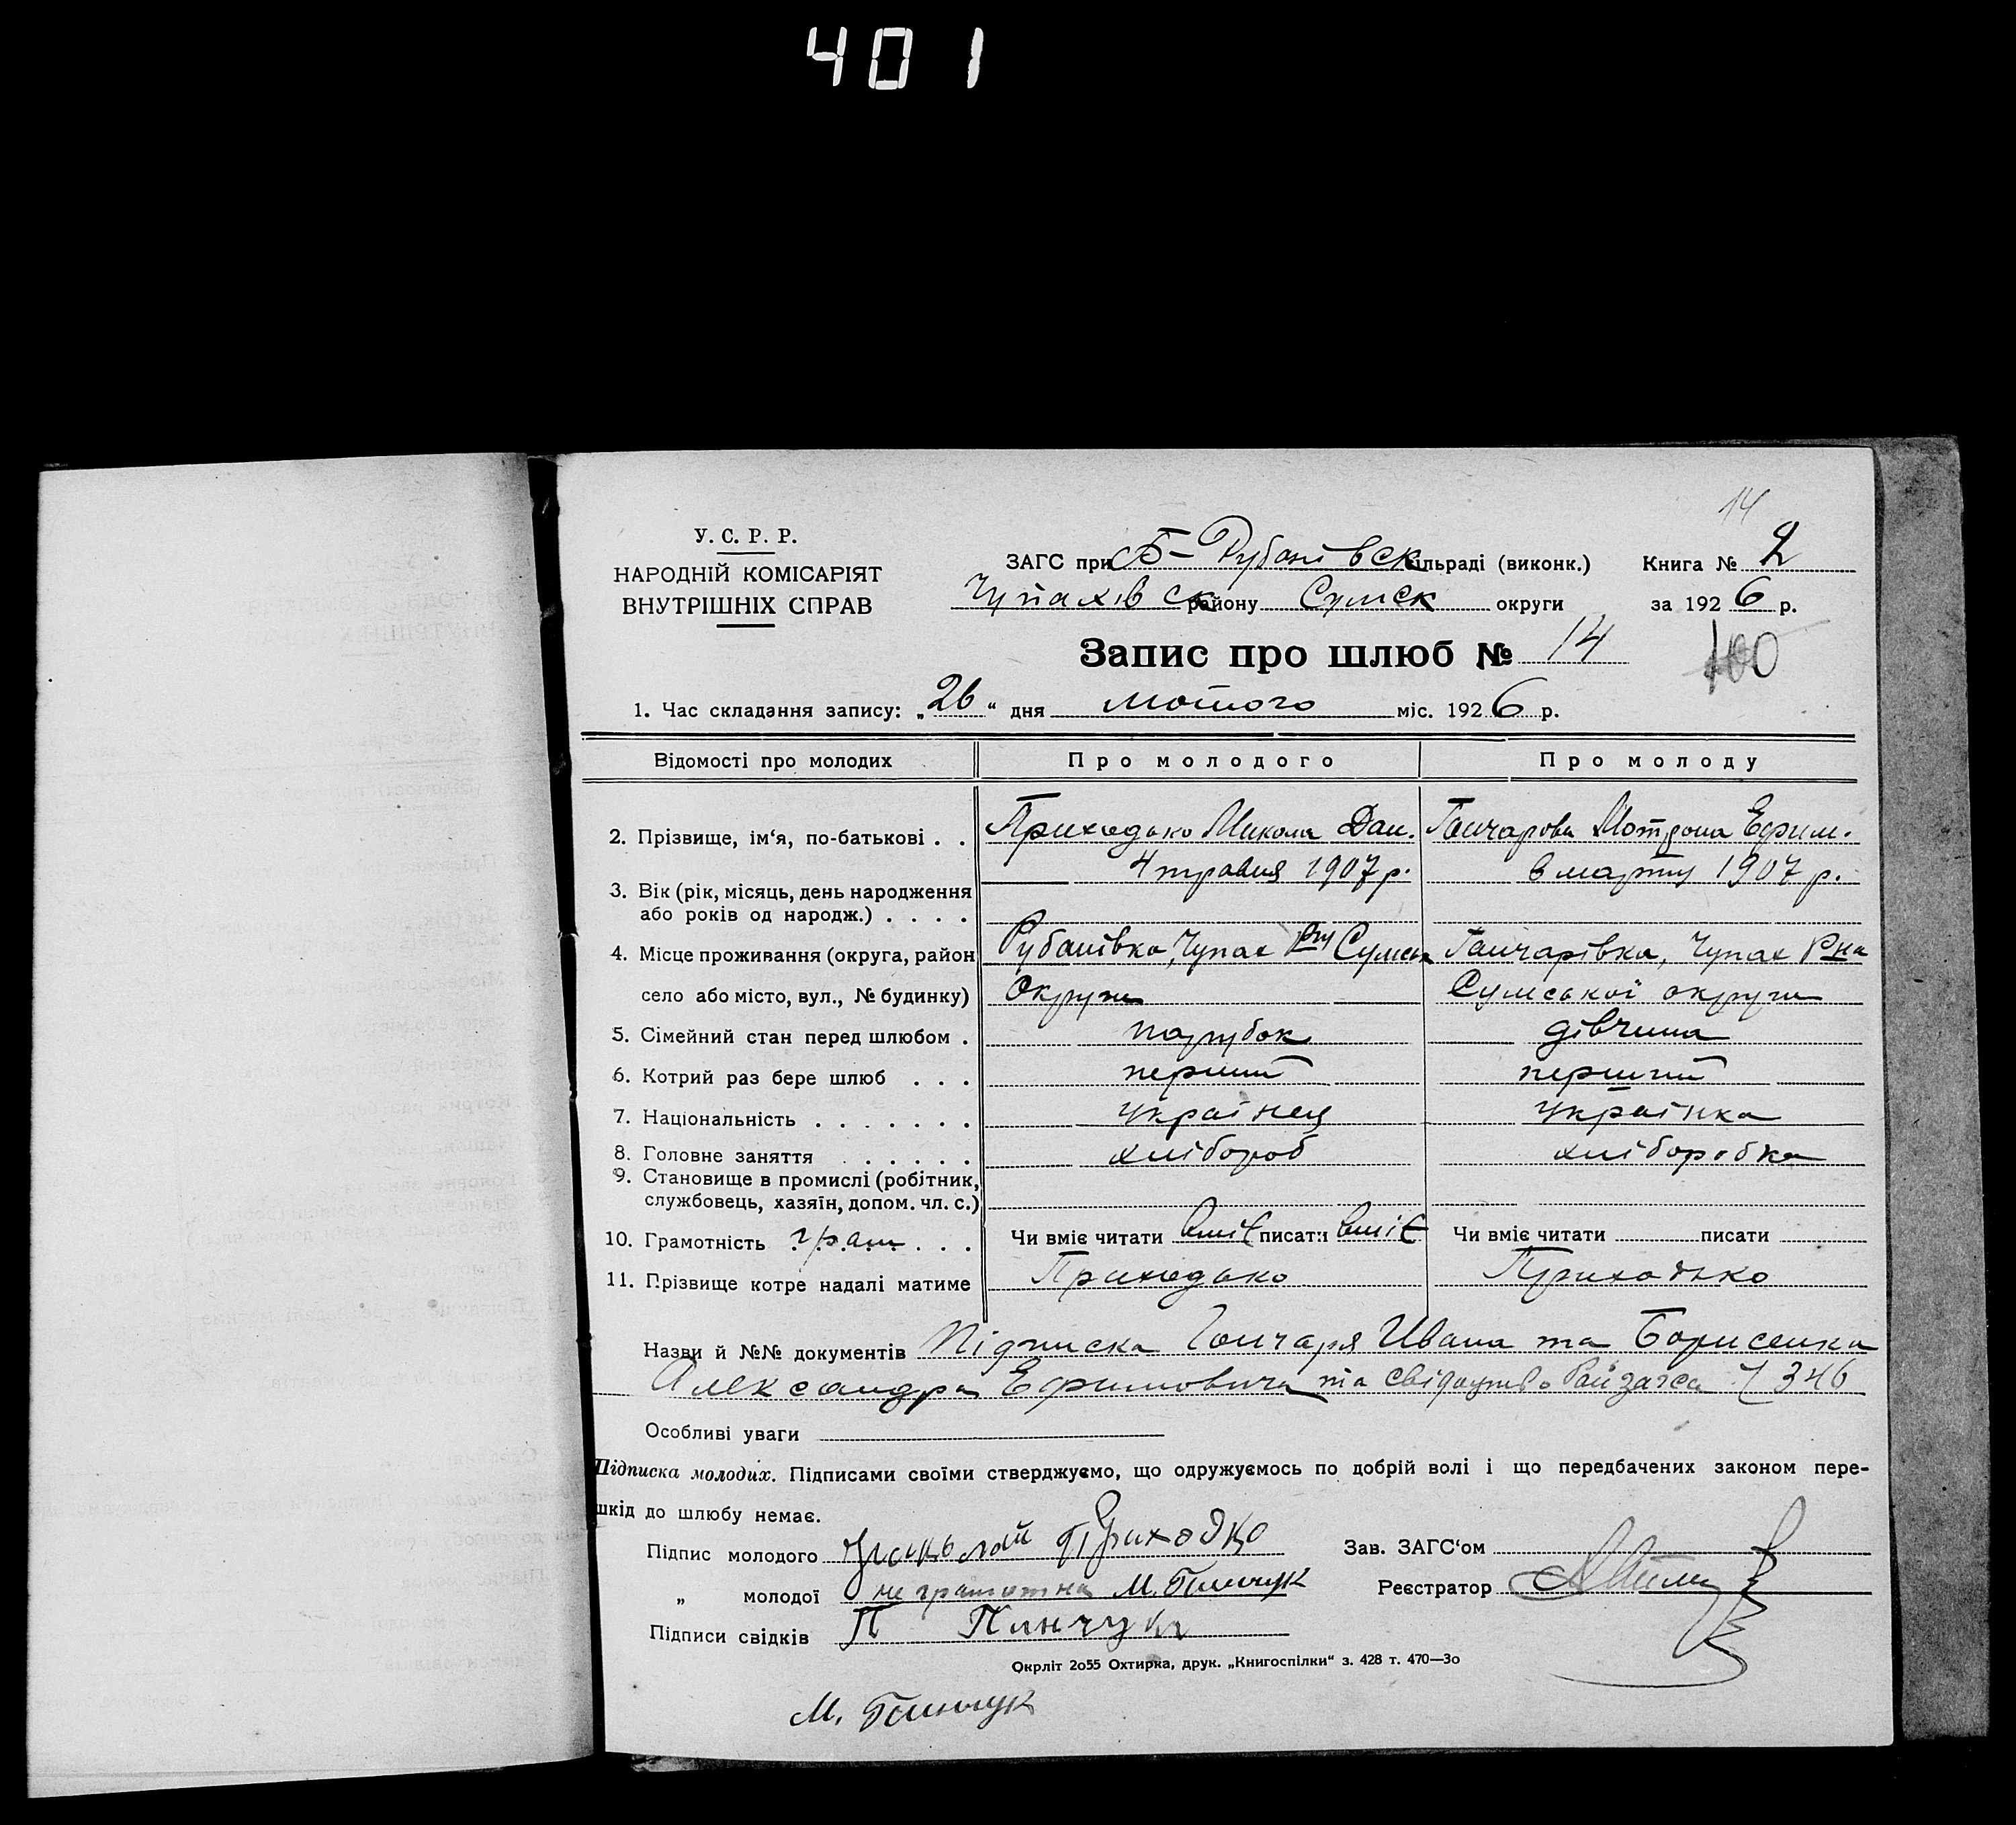 401
14
У. С. Р. Р.
НАРОДНІЙ КОМІСАРІЯТ
ВНУТРІШНІХ СПРАВ
ЗАГС при Б-Рубанівск сільраді (виконк.) Книга № 2
Чупахівск району Сумск округи за 1926 р.
Запис про шлюб № 14
100
1. Час складання запису: „26“ дня лютого міс. 1926 р.
Відомості про молодих Про молодого Про молоду
2. Прізвище, ім‘я, по-батькові . . Приходько Микола Дан. Гончарова Мотрона Ефим.
3. Вік (рік, місяць, день народження 4 травня 1907 р. 6 марту 1907 р.
або років од народж.) . . . .
4. Місце проживання (округа, район Рубанівка, Чупах Рну Сумськ Гончарівка, Чупах Рна
село або місто, вул., № будинку) Округи Сумської округи
5. Сімейний стан перед шлюбом . парубок дівчина
6. Котрий раз бере шлюб . . . перший перший
7. Національність . . . . . . . українец українка
8. Головне заняття . . . . . хлібороб хлiборобка
9. Становище в промислі (робітник,
службовець, хазяїн, допом. чл. с.)
10. Грамотність грам . . . Чи вміє читати вміє писати вміє Чи вміє читати писати
11. Прізвище котре надалі матиме Приходько Приходько
Назви й №№ документів Підписка Гончаря Ивана та Борисенка
Александра Ефимовича та свідоцтво Райзагса 346
Особливі уваги
Підписка молодих. Підписами своїми стверджуємо, що одружуємось по добрій волі і що передбачених законом пере-
шкід до шлюбу немає.
Підпис молодого Приходко Зав. ЗАГС‘ом
„ молодої не грамотна М. Панчук Реєстратор
Підписи свідків П Панчук
Окрліт 2о55 Охтирка, друк. „Книгоспілки“ з. 428 т. 470—3о
М. Панчук